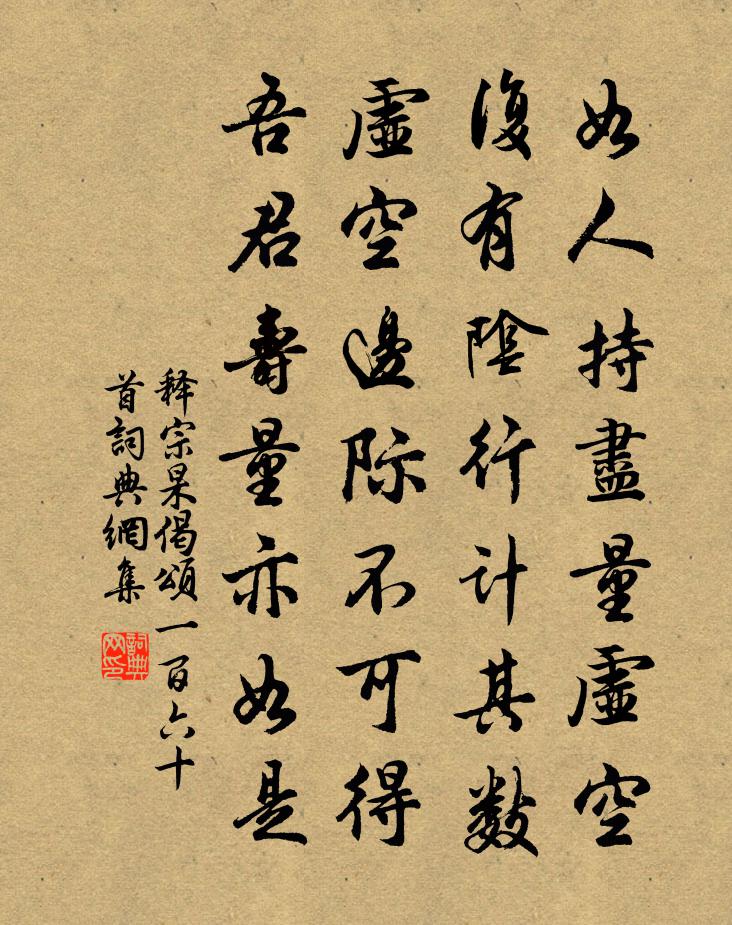 如人持盡量虛空
復有陰行計其數
虛空邊际不可得
吾君壽量亦如是
释宗杲偈頌一百六十
首詞典網集
詞典网印